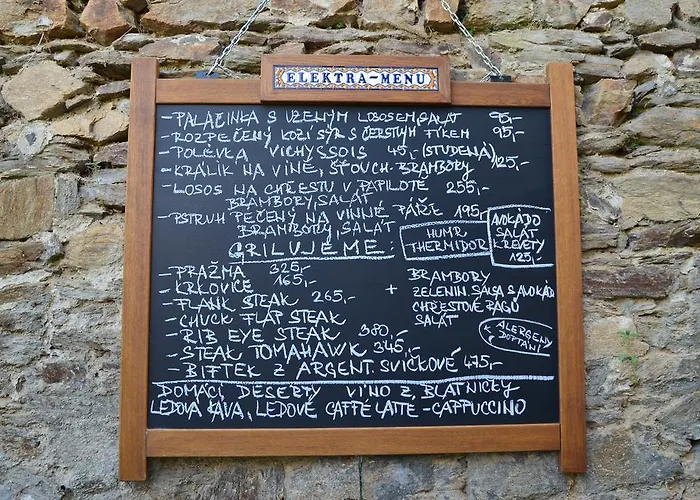 ELEKTRA-MENU
- PALAČINKA S UZENÝM LOSOSEM, SALÁT 95,-
- ROZPEČENÝ KOZÍ SÝR S ČERSTVÝM FÍKEM 95,-
- POLÉVKA VICHYSSOIS 45,- (STUDENÁ)
- KRÁLÍK NA VÍNĚ, ŠŤOUCH. BRAMBORY 125,-
- LOSOS NA CHŘESTU V PAPILOTĚ 255,-
BRAMBORY, SALÁT
- PSTRUH PEČENÝ NA VINNÉ PÁŘE 195,-
BRAMBORY, SALÁT
HUMR THERMIDOR
AVOKÁDO
SALÁT
KREVETY
125,-
GRILUJEME:
- PRAŽMA 325,-
- KRKOVICE 165,-
- FLANK STEAK 265,-
- CHUCK FLAP STEAK
- RIB EYE STEAK 380,-
- STEAK TOMAHAWK 345,-
- BIFTEK Z ARGENT. SVÍČKOVÉ 475,-
+ BRAMBORY
ZELENIN. SALSA S AVOKÁD
CHŘESTOVÉ RAGÚ
SALÁT
ALERGENY
K DOPTÁNÍ
DOMÁCÍ DESERTY VÍNO Z BLATNIČKY
LEDOVÁ KÁVA, LEDOVÉ CAFFÉ LATTE - CAPPUCCINO